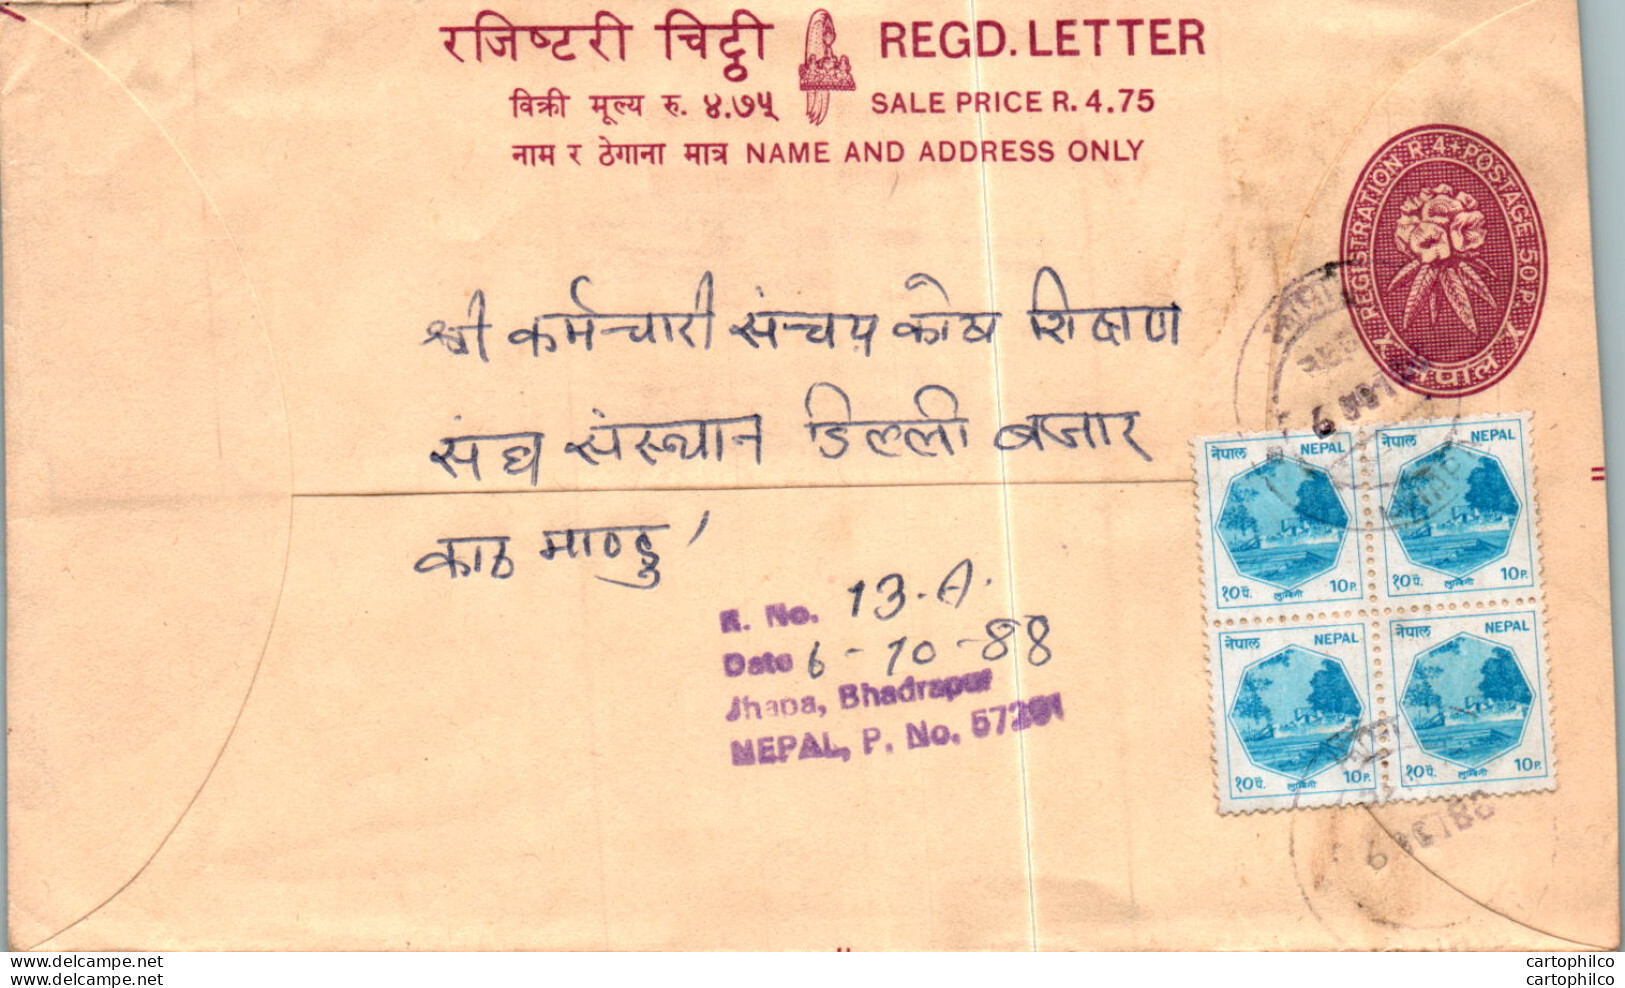 रजिष्टरी चिट्ठी REGD. LETTER
विक्री मूल्य रु. ४.७५ SALE PRICE R. 4.75
नाम र ठेगाना मात्र NAME AND ADDRESS ONLY
REGISTRATION R 4 + POSTAGE 50 P.
नेपाल
श्री कर्मचारी संचय कोष शिक्षण
संघ संस्थान डिल्ली बजार
काठमाण्डु
R. No. 13-A.
Date 6-10-88
Jhapa, Bhadrapur
NEPAL, P. No.
नेपाल NEPAL
१० पै. लुम्बिनी 10 P.
नेपाल NEPAL
१० पै. लुम्बिनी 10 P.
नेपाल NEPAL
१० पै. लुम्बिनी 10 P.
नेपाल NEPAL
१० पै. लुम्बिनी 10 P.
cartophilco
cartophilco